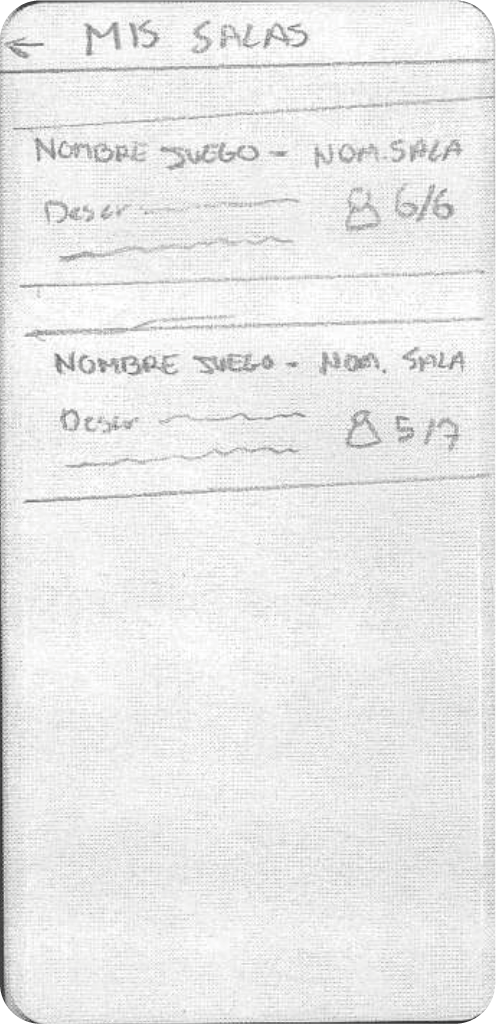 ← MIS SALAS
NOMBRE JUEGO - NOM. SALA
Descr 6/6
NOMBRE JUEGO - NOM. SALA
Descr 5/7